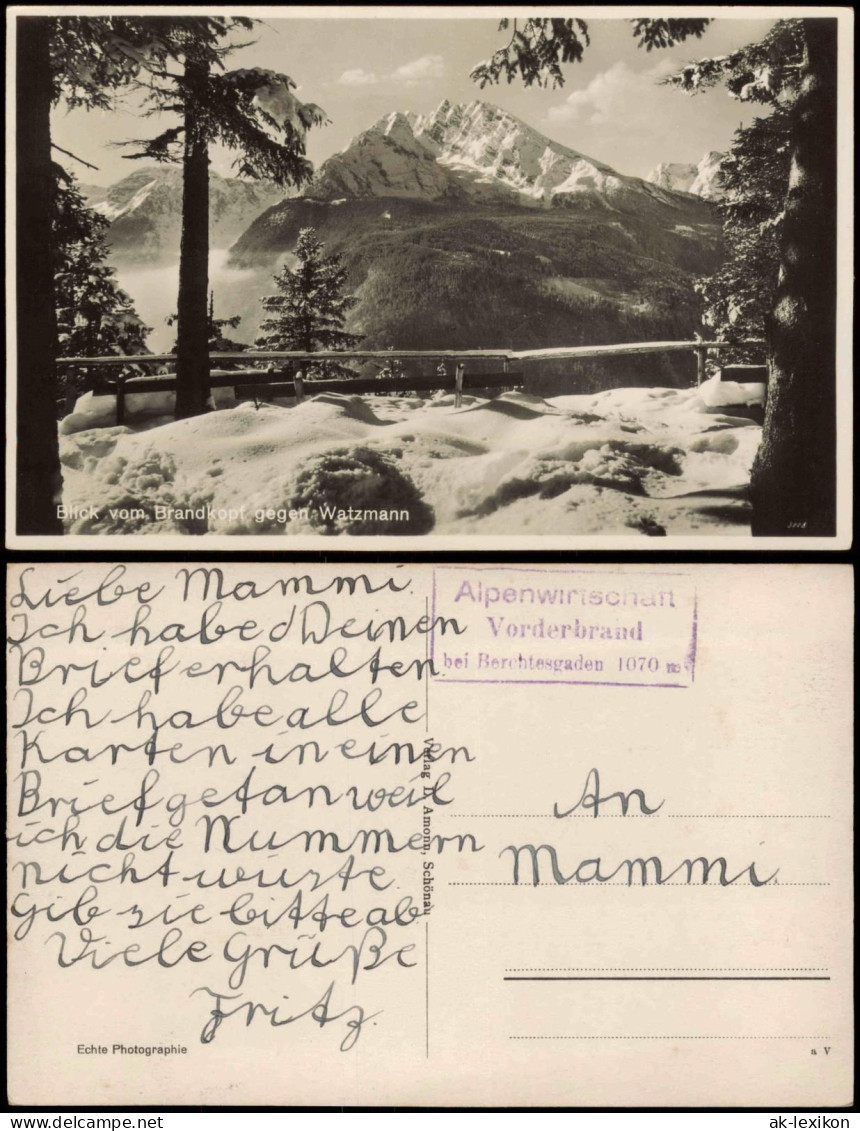 Blick vom Brandkopf gegen Watzmann
Liebe Mammi.
Ich habe Deinen
Brief erhalten.
Ich habe alle
Karten in einen
Brief getan weil
ich die Nummern
nicht wuste.
Gib sie bitte ab.
Viele Grüße
Fritz.
Echte Photographie
Verlag L. Amonn, Schönau
Alpenwirtschaft
Vorderbrand
bei Berchtesgaden 1070 m
An
Mammi.
n V
ak-lexikon